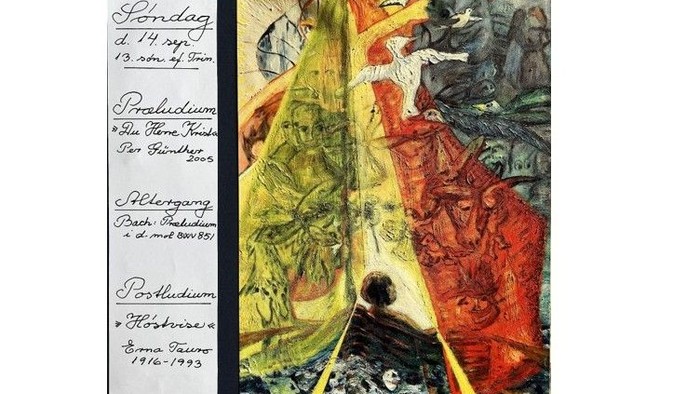 Søndag
d. 14. sep.
13. søn. ef. Trin.
Præludium
"Du Herre Krist"
Per Günther
2005
Altergang
Bach: Præludium
i d-mol BWV 851
Postludium
"Höstvise"
Erna Tauro
1916-1993